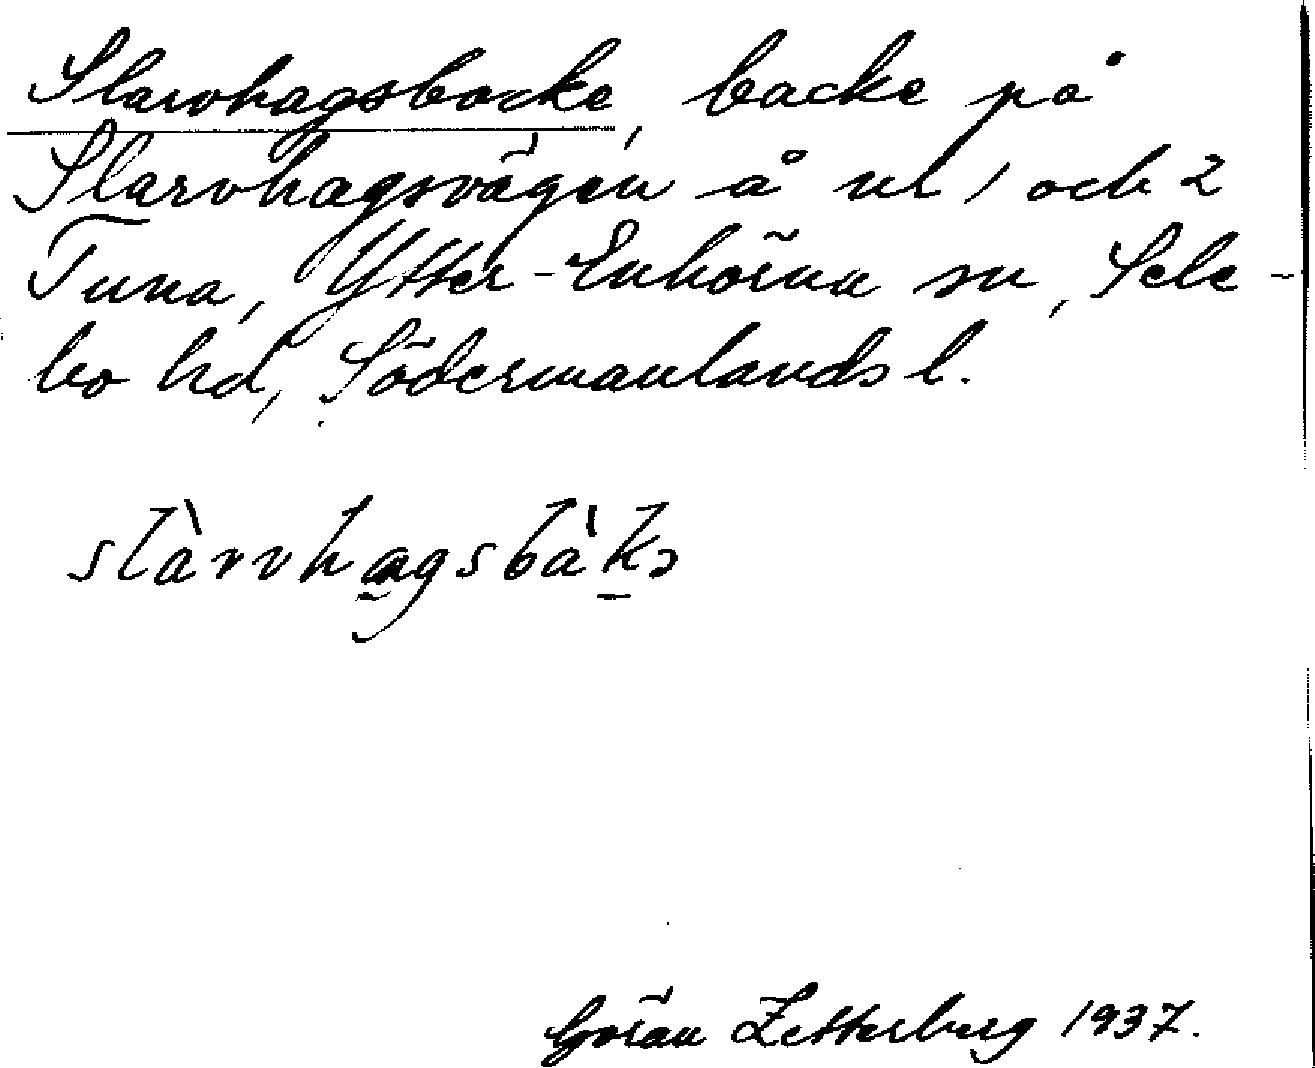 Slarvhagsbacke, backe på
Slarvhagsvägen å nr 1 och 2
Tuna, Ytter-Enhörna sn, Sele-
bo hd, Södermanlands l.
slàrvhagsbàkə
Göran Zetterberg 1937.